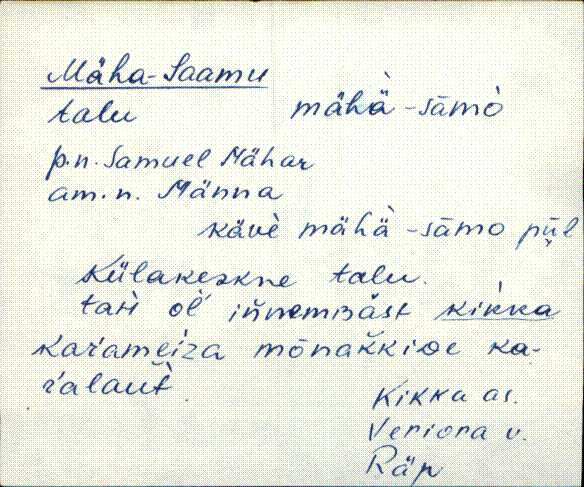 Mäha-Saamu
talu mähä̀-sāmò
p.n. Samuel Mähar
am.n. Männa
kävè mähä̀-sāmo pīl
Külakeskne talu.
tań oĺ iňnembäst kikka
kaŕameiza mōnakkide ka-
ŕalaut̀
Kikka as.
Veriora v.
Räp